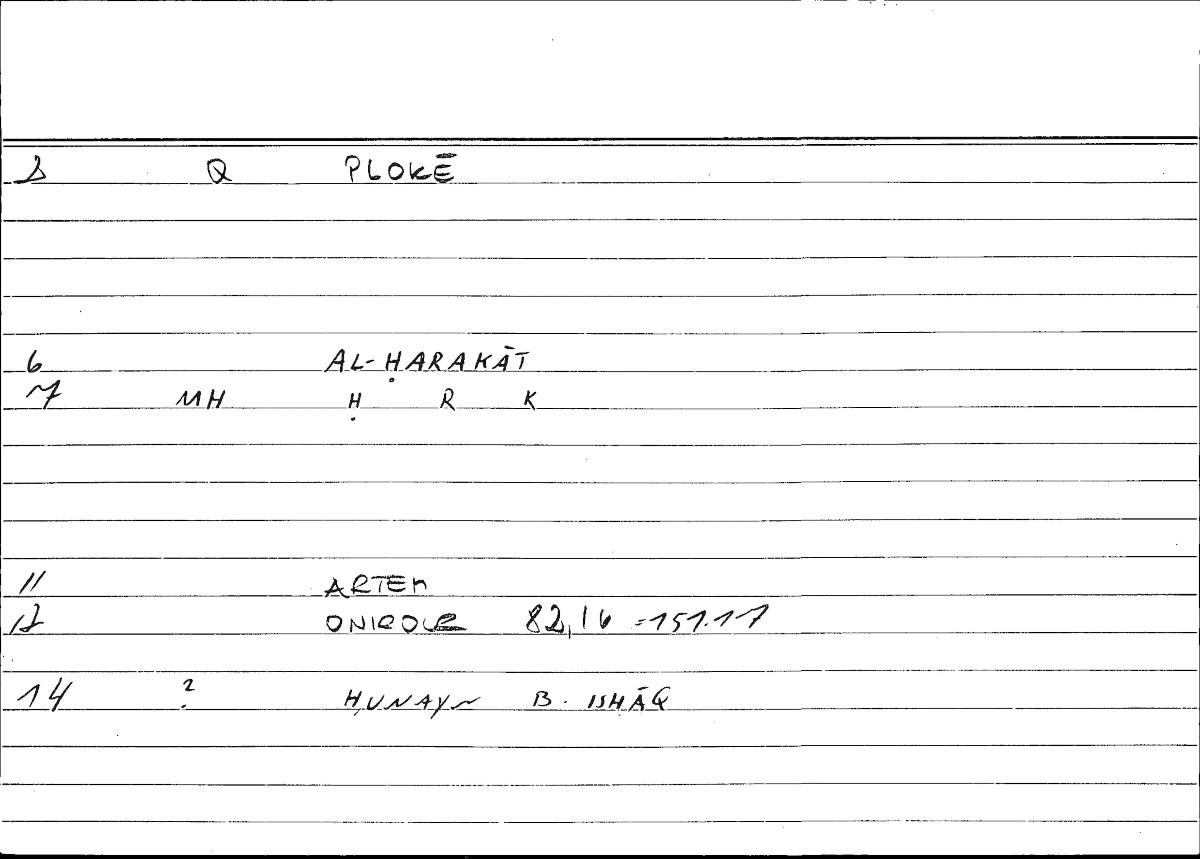 2 Q PLOKĒ
6 AL-ḤARAKĀT
7 MH Ḥ R K
11 ARTEM
12 ONIROCR 82,16 =151.17
14 ? ḤUNAYN B. ISḤĀQ